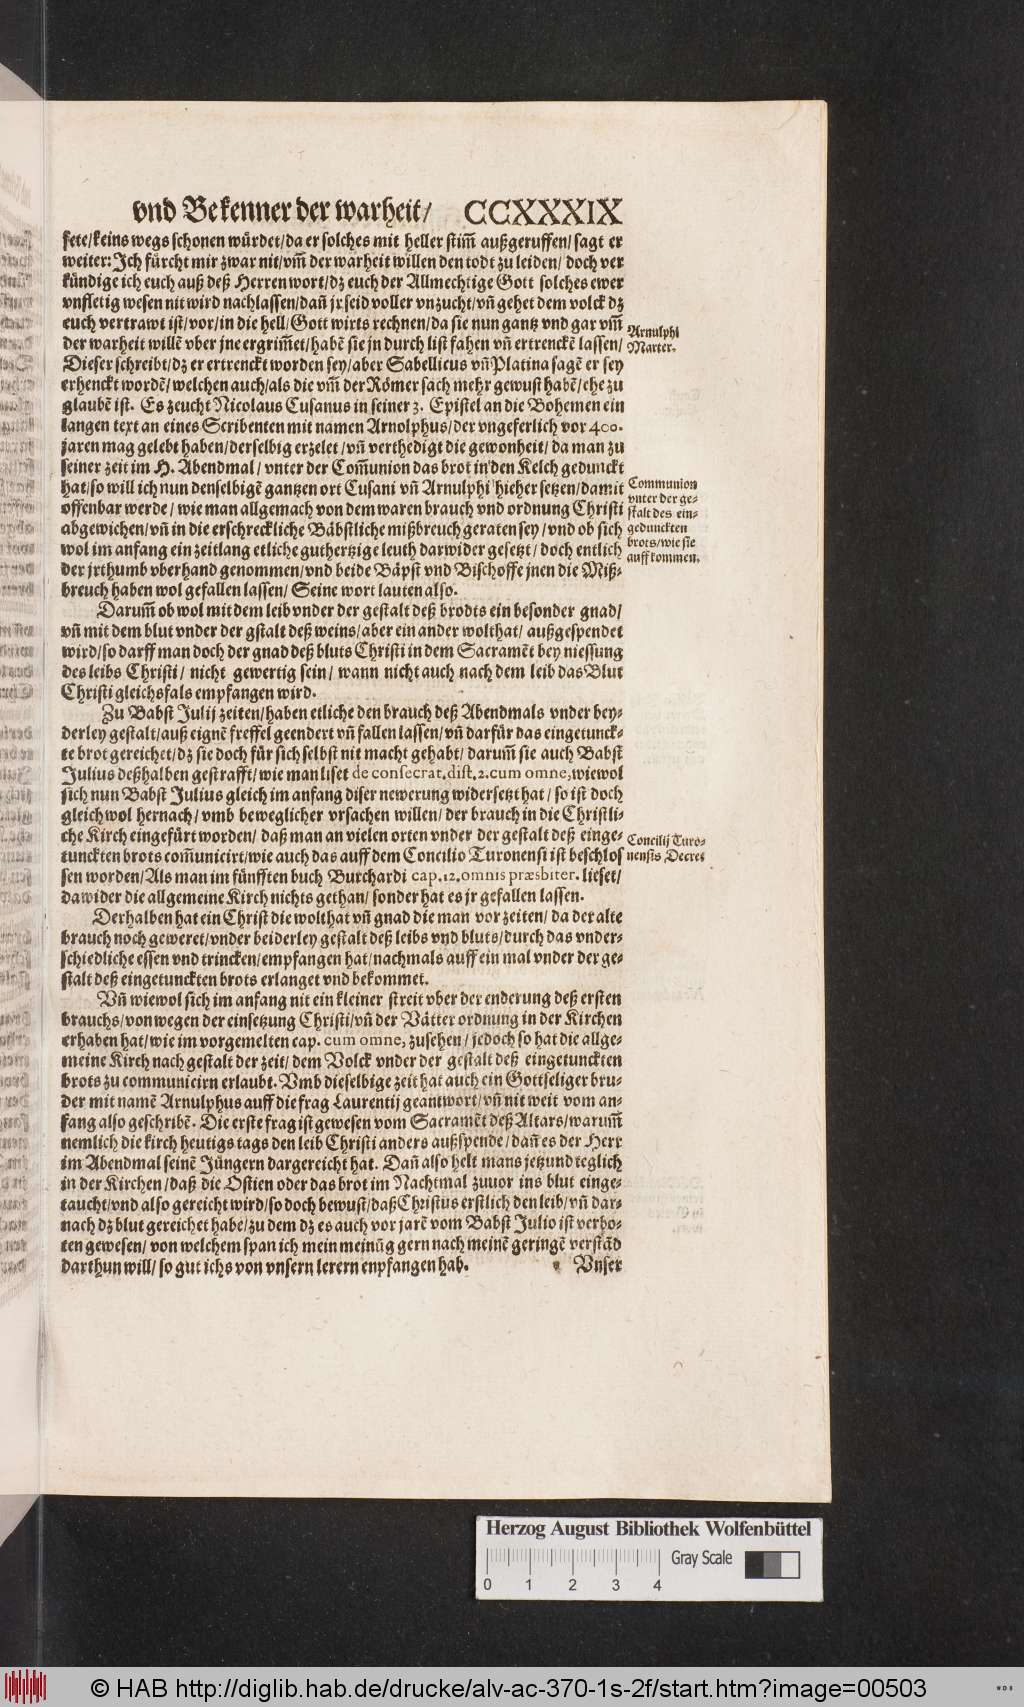 vnd Bekenner der warheit/ CCXXXIX
fete/keins wegs schonen würdet/da er solches mit heller stim̃ außgeruffen/ sagt er
weiter: Ich fürcht mir zwar nit/vm̃ der warheit willen den todt zu leiden/ doch ver
kündige ich euch auß deß Herren wort/dz euch der Allmechtige Gott solches ewer
vnfletig wesen nit wird nachlassen/dañ jr seid voller vnzucht/vñ gehet dem volck dz
euch vertrawt ist/vor/in die hell/Gott wirts rechnen/da sie nun gantz vnd gar vm̃
der warheit willẽ vber jne ergrim̃et/habẽ sie jn durch list fahen vñ ertrenckẽ lassen/
Dieser schreibt/dz er ertrenckt worden sey/aber Sabellicus vñ Platina sagẽ er sey
erhenckt wordẽ/welchen auch/als die vm̃ der Römer sach mehr gewust habẽ/ehe zu
glaubẽ ist. Es zeucht Nicolaus Cusanus in seiner 3. Epistel an die Bohemen ein
langen text an eines Scribenten mit namen Arnolphus/der vngeferlich vor 400.
jaren mag gelebt haben/derselbig erzelet/vñ verthedigt die gewonheit/da man zu
seiner zeit im H. Abendmal/vnter der Com̃union das brot in den Kelch gedunckt
hat/so will ich nun denselbigẽ gantzen ort Cusani vñ Arnulphi hieher setzen/damit
offenbar werde/wie man allgemach von dem waren brauch vnd ordnung Christi
abgewichen/vñ in die erschreckliche Bäbstliche mißbreuch geraten sey/vnd ob sich
wol im anfang ein zeitlang etliche guthertzige leuth darwider gesetzt/doch entlich
der jrthumb vberhand genommen/vnd beide Bäpst vnd Bischoffe jnen die Miß-
breuch haben wol gefallen lassen/ Seine wort lauten also.
Darum̃ ob wol mit dem leib vnder der gestalt deß brodts ein besonder gnad/
vñ mit dem blut vnder der gstalt deß weins/aber ein ander wolthat/ außgespendet
wird/so darff man doch der gnad deß bluts Christi in dem Sacramẽt bey niessung
des leibs Christi/ nicht gewertig sein/ wann nicht auch nach dem leib das Blut
Christi gleichsfals empfangen wird.
Zu Babst Julij zeiten/haben etliche den brauch deß Abendmals vnder bey-
derley gestalt/auß eignẽ freffel geendert vñ fallen lassen/vñ darfür das eingetunck-
te brot gereichet/dz sie doch für sich selbst nit macht gehabt/ darum̃ sie auch Babst
Julius deßhalben gestrafft/wie man liset de consecrat. dist. 2. cum omne, wiewol
sich nun Babst Julius gleich im anfang diser newerung widersetzt hat/ so ist doch
gleichwol hernach/ vmb beweglicher vrsachen willen/ der brauch in die Christli-
che Kirch eingefürt worden/ daß man an vielen orten vnder der gestalt deß einge-
tunckten brots com̃unicirt/wie auch das auff dem Concilio Turonensi ist beschlos
sen worden/Als man im fünfften buch Burchardi cap. 12. omnis præsbiter. lieset/
dawider die allgemeine Kirch nichts gethan/ sonder hat es jr gefallen lassen.
Derhalben hat ein Christ die wolthat vñ gnad die man vor zeiten/ da der alte
brauch noch geweret/vnder beiderley gestalt deß leibs vnd bluts/durch das vnder-
schiedliche essen vnd trincken/empfangen hat/nachmals auff ein mal vnder der ge-
stalt deß eingetunckten brots erlanget vnd bekommet.
Vñ wiewol sich im anfang nit ein kleiner streit vber der enderung deß ersten
brauchs/von wegen der einsetzung Christi/vñ der Vätter ordnung in der Kirchen
erhaben hat/wie im vorgemelten cap. cum omne, zusehen/ jedoch so hat die allge-
meine Kirch nach gestalt der zeit/ dem Volck vnder der gestalt deß eingetunckten
brots zu communicirn erlaubt. Vmb dieselbige zeit hat auch ein Gottseliger bru-
der mit namẽ Arnulphus auff die frag Laurentij geantwort/vñ nit weit vom an-
fang also geschribẽ. Die erste frag ist gewesen vom Sacramẽt deß Altars/warum̃
nemlich die kirch heutigs tags den leib Christi anders außspende/dañ es der Herr
im Abendmal seinẽ Jüngern dargereicht hat. Dañ also helt mans jetzund teglich
in der Kirchen/daß die Ostien oder das brot im Nachtmal zuuor ins blut einge-
taucht/vnd also gereicht wird/so doch bewust/daß Christus erstlich den leib/vñ dar-
nach dz blut gereichet habe/zu dem dz es auch vor jarẽ vom Babst Julio ist verbo-
ten gewesen/ von welchem span ich mein meinũg gern nach meinẽ geringẽ verstãd
darthun will/ so gut ichs von vnsern lerern enpfangen hab. Vnser
Arnulphi
Marter.
Communion
vnter der ge-
stalt des ein-
gedunckten
brots/wie sie
auffkommen.
Concilij Turo-
nensis Decret
Herzog August Bibliothek Wolfenbüttel
Gray Scale
0 1 2 3 4
© HAB http://diglib.hab.de/drucke/alv-ac-370-1s-2f/start.htm?image=00503